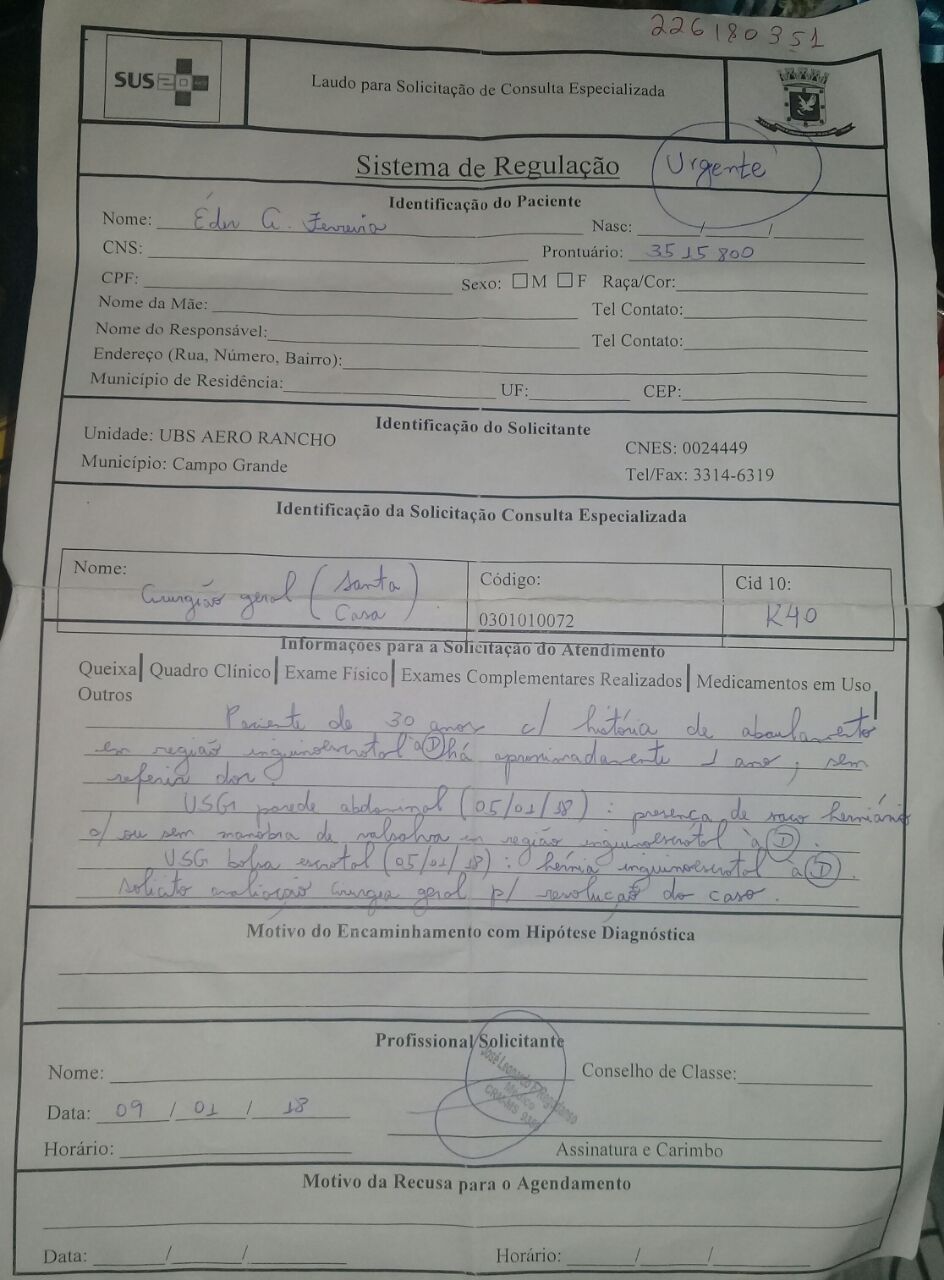 226180351
SUS
Laudo para Solicitação de Consulta Especializada
Sistema de Regulação
Urgente
Identificação do Paciente
Nome: Éder G. Ferreira Nasc: / /
CNS: Prontuário: 3515800
CPF: Sexo: □M □F Raça/Cor:
Nome da Mãe: Tel Contato:
Nome do Responsável: Tel Contato:
Endereço (Rua, Número, Bairro):
Município de Residência: UF: CEP:
Identificação do Solicitante
Unidade: UBS AERO RANCHO CNES: 0024449
Município: Campo Grande Tel/Fax: 3314-6319
Identificação da Solicitação Consulta Especializada
Nome: Código: Cid 10:
Cirurgião geral (Santa Casa) 0301010072 K40
Informações para a Solicitação do Atendimento
Queixa| Quadro Clínico| Exame Físico| Exames Complementares Realizados| Medicamentos em Uso|
Outros
Paciente de 30 anos c/ história de abaulamento
em região inguinoescrotal à D há aproximadamente 1 ano, sem
referir dor.
USG parede abdominal (05/01/18): presença de saco herniário
c/ ou sem manobra de valsalva em região inguinoescrotal à D.
USG bolsa escrotal (05/01/18): hérnia inguinoescrotal à D.
Solicito avaliação cirurgia geral p/ resolução do caso.
Motivo do Encaminhamento com Hipótese Diagnóstica
Profissional Solicitante
Nome: Conselho de Classe:
José Leonardo
Médico
CRM-MS
Data: 09 / 01 / 18
Horário: Assinatura e Carimbo
Motivo da Recusa para o Agendamento
Data: / / Horário: / /